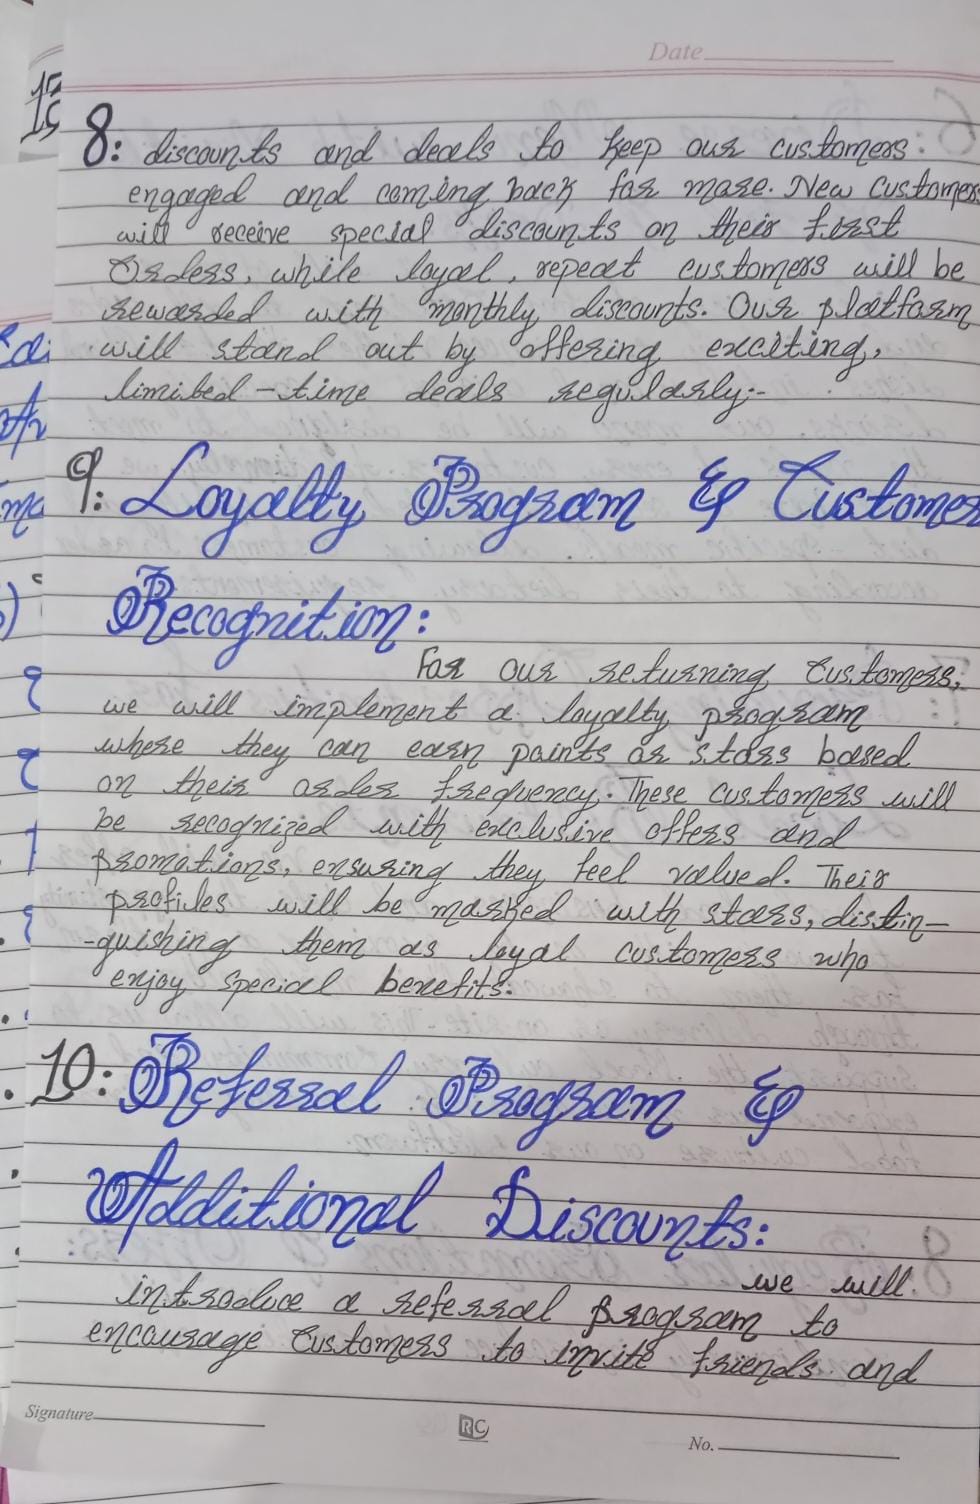 Date
8: discounts and deals to keep our customers
engaged and coming back for more. New customers
will receive special discounts on their first
Orders, while loyal, repeat customers will be
rewarded with monthly discounts. Our platform
will stand out by offering exciting,
limited-time deals regularly:-
9: Loyalty Program & Customer
Recognition:
For our returning Customers,
we will implement a loyalty program
where they can earn points or stars based
on their order frequency. These customers will
be recognized with exclusive offers and
promotions, ensuring they feel valued. Their
profiles will be marked with stars, distin-
-guishing them as loyal customers who
enjoy special benefits.
10: Referral Program &
Additional Discounts:
we will
introduce a referral program to
encourage Customers to invite friends and
Signature
RC
No.